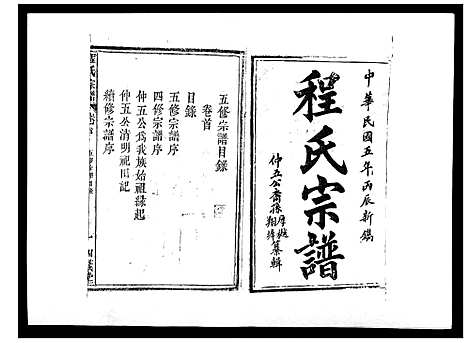 中華民國五年丙辰新鐫
程氏宗譜
仲五公裔孫
纂輯
五修宗譜目錄
卷首
目錄
五修宗譜序
四修宗譜序
仲五公為我族始祖緣起
仲五公清明祀田記
續修宗譜序
程氏宗譜